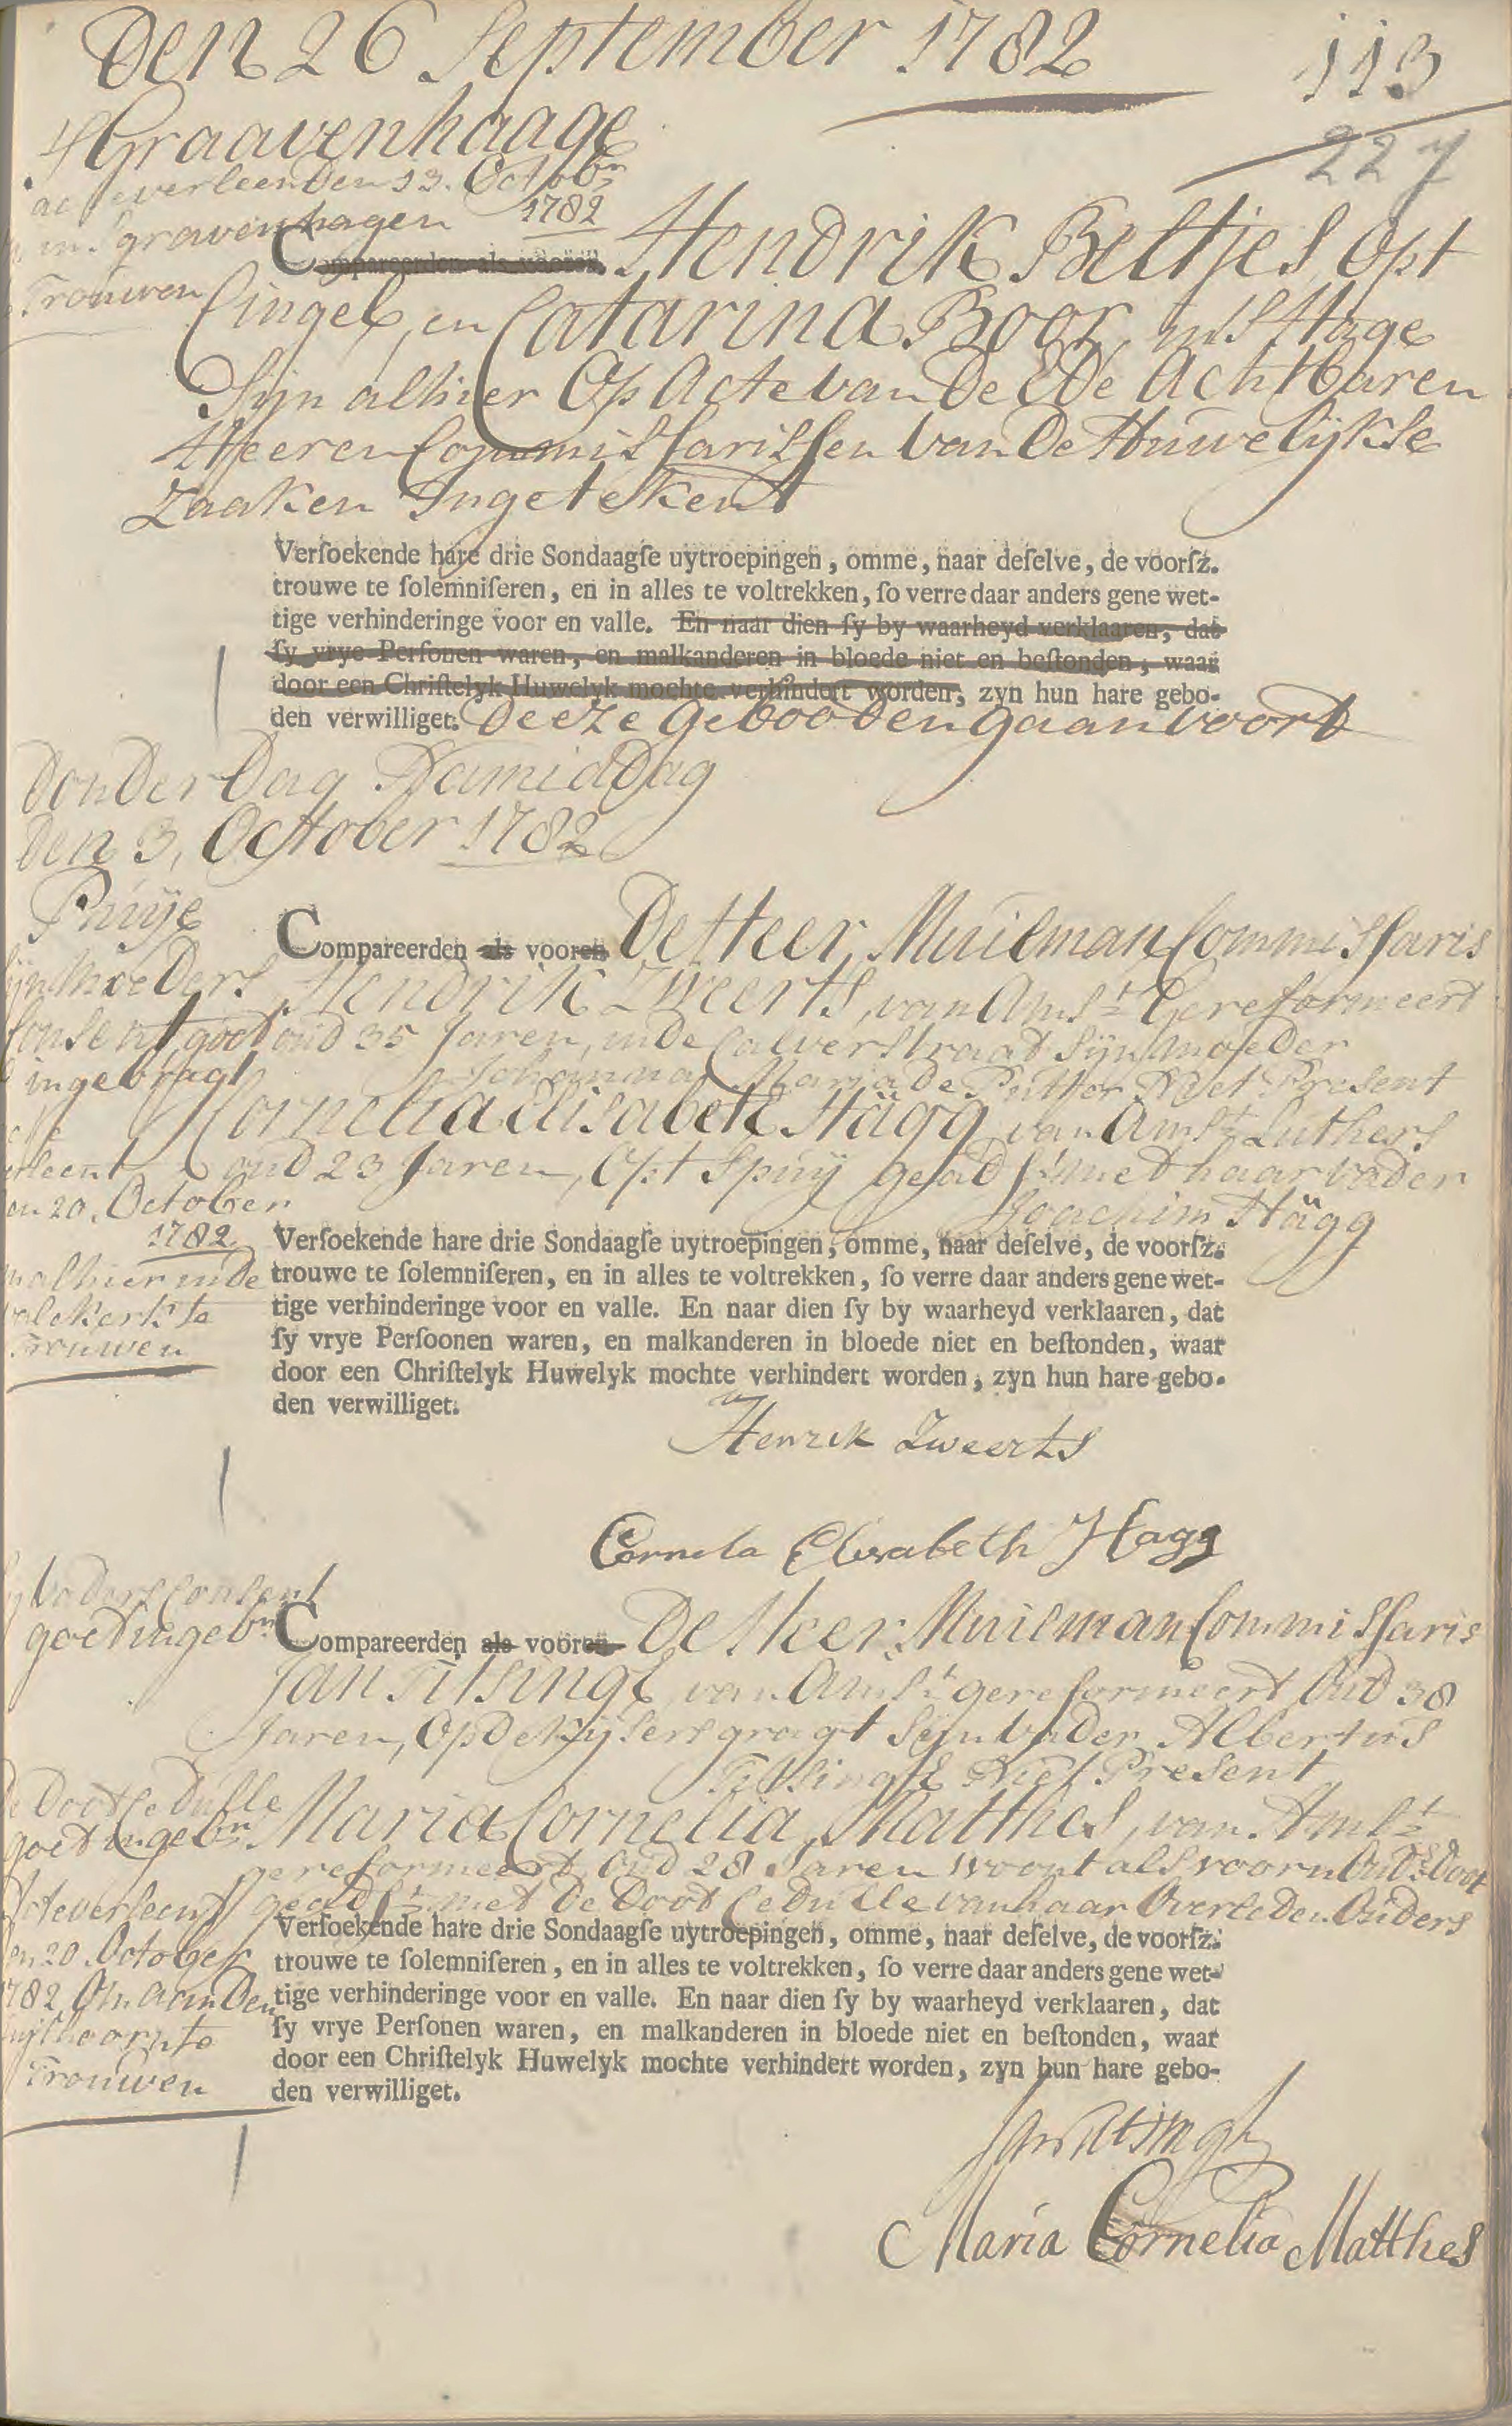 Den 26 September 1782
113
227
S'Graavenhaage
acte verleen Den 13. Octobr
1782
in S'gravenhagen
Trouwen
Compareerden als vooren Hendrik Beltjes, opt
Cingel, en Catarina Boor, in S'Hage
Sijn alhier Op Acte van De EDe AchtBaren
Heeren Commissarissen van De Huwelijkse
Zaaken Ingetekent
Versoekende hare drie Sondaagse uytroepingen, omme, naar deselve, de voorsz.
trouwe te solemniseren, en in alles te voltrekken, so verre daar anders gene wet-
tige verhinderinge voor en valle. En naar dien sy by waarheyd verklaaren, dat
sy vrye Personen waren, en malkanderen in bloede niet en bestonden, waar
door een Christelyk Huwelyk mochte verhindert worden, zyn hun hare gebo-
den verwilliget. Deeze gebooden gaan voort
DonderDag NamidDag
Den 3, October 1782
Puije
Compareerden als vooren De Heer Muilman Commissaris
Hendrik Zweerts, van Amst Gereformeert
sijn moeders
oud 35 Jaren, in de Calverstraat Sijn moeder
Consent goet
Johanna Maria De Putter Niet Present
ingebragt
Cornelia Elisabeth Hägg van Amst Luthers
oud 23 Jaren, Opt Spuij geadst met haar vader
Joachim Hägg
verleent
den 20. October
1782
om alhier in de
walekerk te
Trouwen
Versoekende hare drie Sondaagse uytroepingen, omme, naar deselve, de voorsz.
trouwe te solemniseren, en in alles te voltrekken, so verre daar anders gene wet-
tige verhinderinge voor en valle. En naar dien sy by waarheyd verklaaren, dat
sy vrye Persoonen waren, en malkanderen in bloede niet en bestonden, waar
door een Christelyk Huwelyk mochte verhindert worden, zyn hun hare gebo-
den verwilliget.
Henrik Zweerts
Cornela Elisabeth Hagg
vaders Consent
goet ingebr
Compareerden als vooren De Heer Muilman Commissaris
Jan Titsingh, van Amst gereformeert Oud 38
Jaren, Op De Kijsersgragt Sijn Vader Albertus
Titsingh Niet Present
De Doot Cedulle
goet ingebr
Maria Cornelia Matthes, van Amst
gereformeert, Oud 28 Jaren woont als voorn Oud.s Doot
geadst met De Doot Cedulle van haar Overleden Ouders
Acte verleent
den 20. October
1782 Om aan Den
uijthoorn te
Trouwen
Versoekende hare drie Sondaagse uytroepingen, omme, naar deselve, de voorsz.
trouwe te solemniseren, en in alles te voltrekken, so verre daar anders gene wet-
tige verhinderinge voor en valle. En naar dien sy by waarheyd verklaaren, dat
sy vrye Personen waren, en malkanderen in bloede niet en bestonden, waar
door een Christelyk Huwelyk mochte verhindert worden, zyn hun hare gebo-
den verwilliget.
Jan Titsingh
Maria Cornelia Matthes